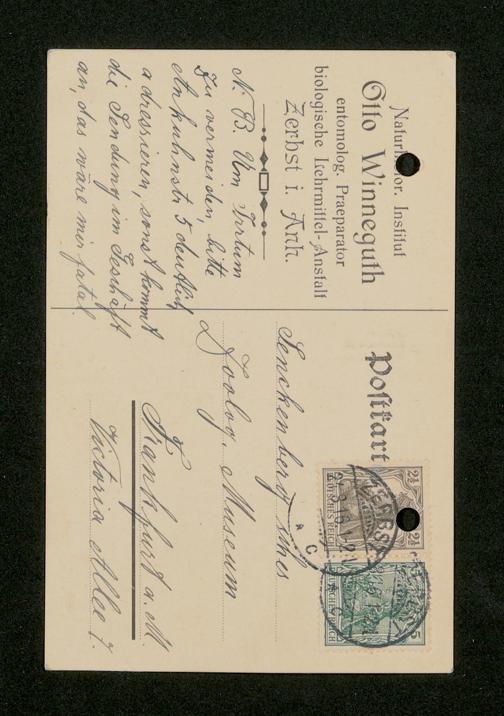 Naturhistor. Institut
Otto Winneguth
entomolog. Praeparator
biologische Lehrmittel-Anstalt
Zerbst i. Anh.
N. B. Um Irrtum
zu vermeiden bitte
Ankuhnstr 5 deutlich
adressieren, sonst kommt
die Sendung im Geschäft
an, das wäre mir fatal.
Postkart
Senckenberg'sches
Zoolog. Museum
Frankfurt a. M.
Victoria Allee 7.
2½ 2½
DEUTSCHES REICH
ZERBST
1-2
* C
5
DEUTSCHES REICH